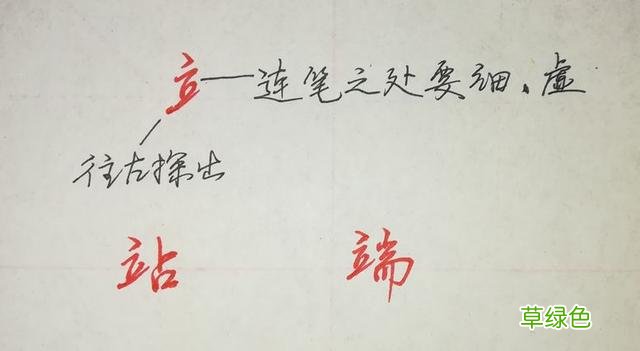 立 — 连笔之处要细、虚
往左探出
站 端
草绿色